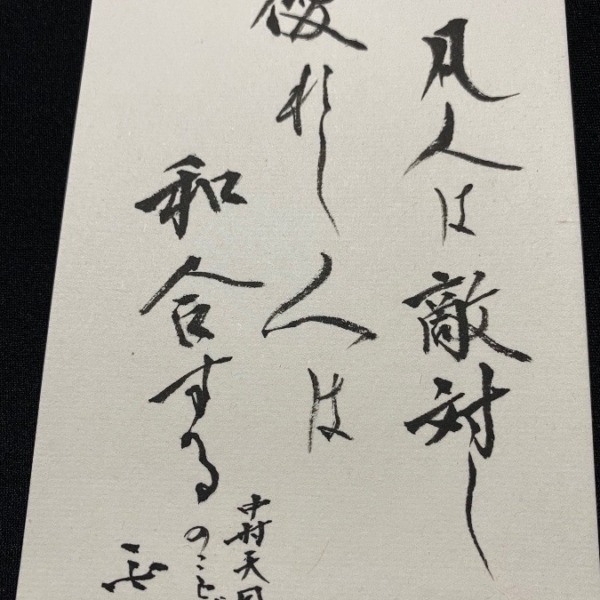 凡人は敵対し
優れし人は
和合する
中村天風
のことば